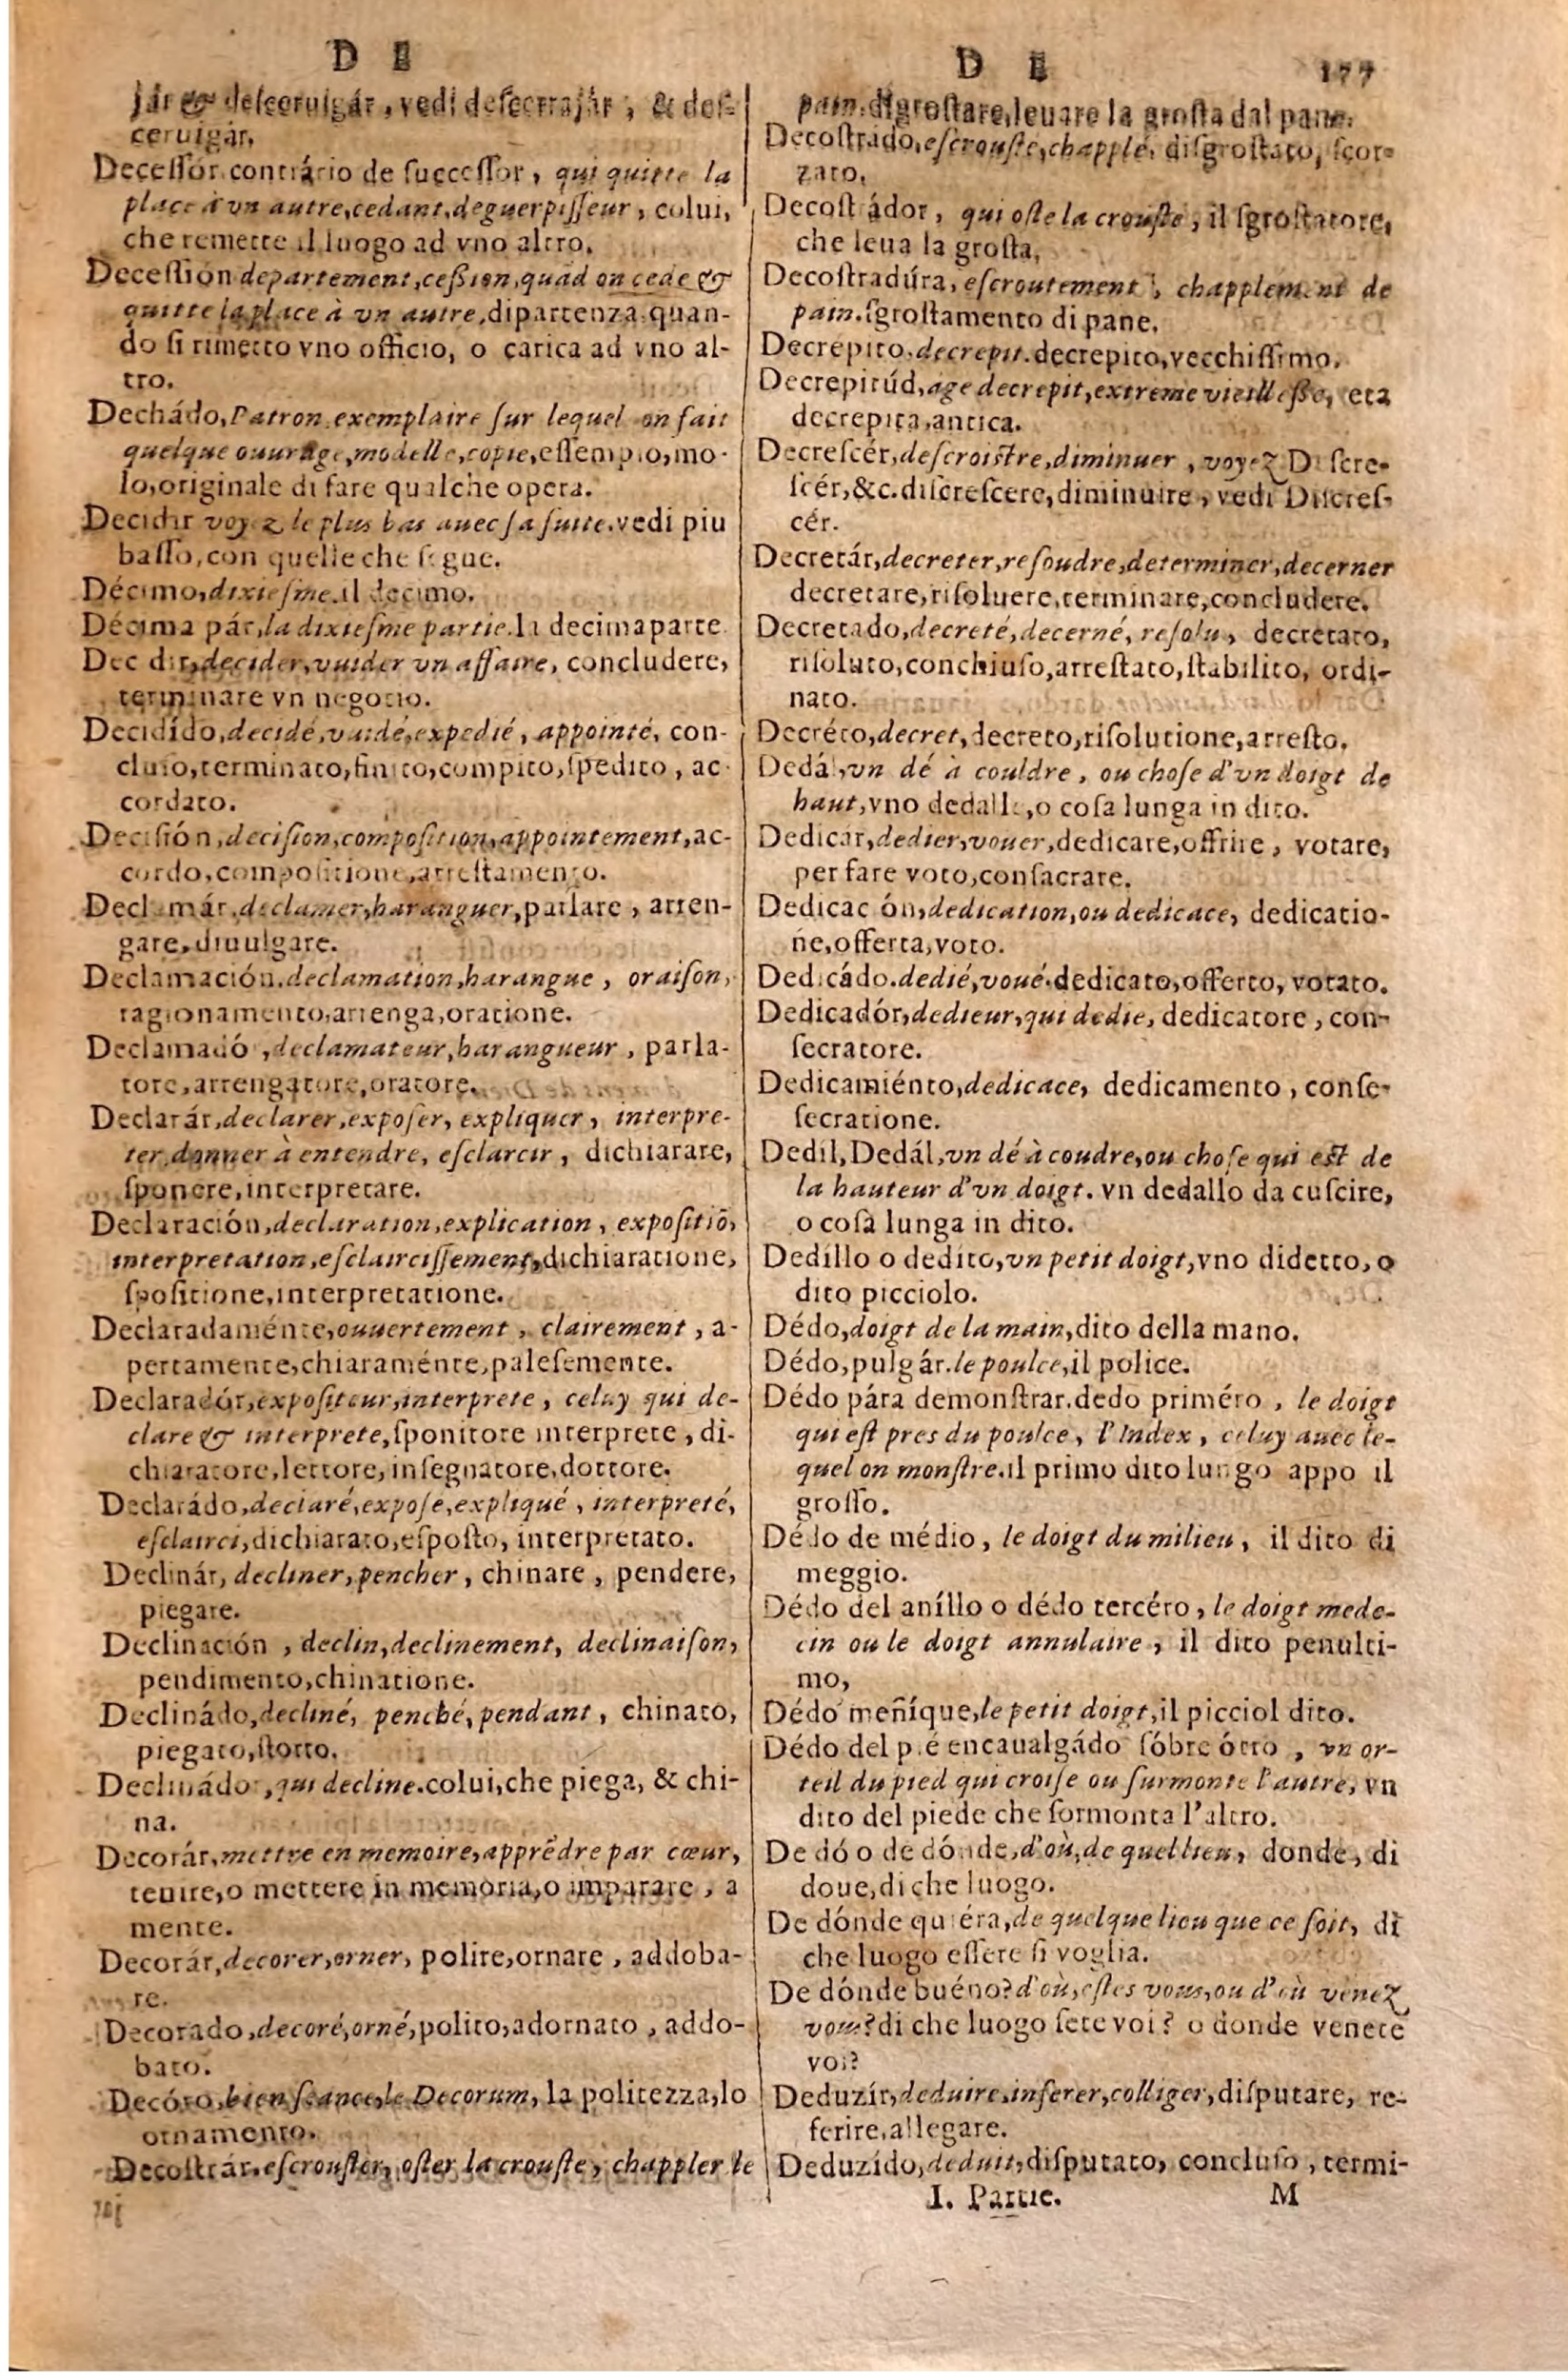 D E
jár & desceruigár, vedi descerrajár, & des-
ceruigár.
Decessór contrário de successor, qui quitte la
place à vn autre, cedant, deguerpisseur, colui,
che remette il luogo ad vno altro.
Decessión departement, cession, quãd on cede &
quitte la place à vn autre, dipartenza quan-
do si rimetto vno officio, o carica ad vno al-
tro.
Dechádo, Patron exemplaire sur lequel on fait
quelque ouurage, modelle, copie, essempio, mo-
lo, originale di fare qualche opera.
Decidir voyez le plus bas auec sa suite. vedi piu
basso, con quelle che segue.
Décimo, dixiesme. il decimo.
Décima pár, la dixiesme partie. la decima parte
Dec dir, decider, vuider vn affaire, concludere,
terminare vn negotio.
Decidído, decidé, vuidé, expedié, appointé, con-
cluso, terminato, finito, compito, spedito, ac-
cordato.
Decisión, decision, composition, appointement, ac-
cordo, compositione, arrestamento.
Declamár, declamer, haranguer, parlare, arren-
gare, diuulgare.
Declamación. declamation, harangue, oraison,
ragionamento, arrenga, oratione.
Declamadó, declamateur, harangueur, parla-
tore, arrengatore, oratore.
Declarár, declarer, exposer, expliquer, interpre-
ter, donner à entendre, esclarcir, dichiarare,
sponere, interpretare.
Declaración, declaration, explication, expositiõ,
interpretation, esclaircissement, dichiaratione,
spositione, interpretatione.
Declaradaménte, ouuertement, clairement, a-
pertamente, chiaraménte, palesemente.
Declaradór, expositeur, interprete, celuy qui de-
clare & interprete, sponitore interprete, di-
chiaratore, lettore, insegnatore, dottore.
Declarádo, declaré, expose, expliqué, interpreté,
esclairci, dichiarato, esposto, interpretato.
Declinár, decliner, pencher, chinare, pendere,
piegare.
Declinación, declin, declinement, declinaison,
pendimento, chinatione.
Declinádo, decliné, penché, pendant, chinato,
piegato, storto.
Declinádor, qui decline. colui, che piega, & chi-
na.
Decorár, mettre en memoire, apprẽdre par cœur,
tenire, o mettere in memoria, o imparare, a
mente.
Decorár, decorer, orner, polire, ornare, addoba-
re.
Decorado, decoré, orné, polito, adornato, addo-
bato.
Decóro, bien seance, le Decorum, la politezza, lo
ornamento.
Decostrár. escrouster, oster la crouste, chappler le
D E 177
pain. digrostare, leuare la grosta dal pane.
Decostrado, escrousté, chapplé, disgrostato, scor-
zato.
Decostrádor, qui oste la crouste, il sgrostatore,
che leua la grosta,
Decostradúra, escroutement, chapplement de
pain. sgrostamento di pane.
Decrepito. decrepit. decrepito, vecchissimo.
Decrepitúd, age decrepit, extreme vieillesse, eta
decrepita, antica.
Decrescér, descroistre, diminuer, voyez Discre-
scér, &c. discrescere, diminuire, vedi Discres-
cér.
Decretár, decreter, resoudre, determiner, decerner
decretare, risoluere, terminare, concludere.
Decretado, decreté, decerné, resolu, decretato,
risoluto, conchiuso, arrestato, stabilito, ordi-
nato.
Decréto, decret, decreto, risolutione, arresto.
Dedál, vn dé à couldre, ou chose d'vn doigt de
haut, vno dedalle, o cosa lunga in dito.
Dedicár, dedier, vouer, dedicare, offrire, votare,
per fare voto, consacrare.
Dedicac ón, dedication, ou dedicace, dedicatio-
ne, offerta, voto.
Dedicádo. dedié, voué. dedicato, offerto, votato.
Dedicadór, dedieur, qui dedie, dedicatore, con-
secratore.
Dedicamiénto, dedicace, dedicamento, conse-
secratione.
Dedíl, Dedál, vn dé à coudre, ou chose qui est de
la hauteur d'vn doigt. vn dedallo da cuscire,
o cosa lunga in dito.
Dedíllo o dedito, vn petit doigt, vno didetto, o
dito picciolo.
Dédo, doigt de la main, dito della mano.
Dédo, pulgár. le poulce, il police.
Dédo pára demonstrar. dedo priméro, le doigt
qui est pres du poulce, l'Index, celuy auec le-
quel on monstre. il primo dito lungo appo il
grosso.
Dédo de médio, le doigt du milieu, il dito di
meggio.
Dédo del aníllo o dédo tercéro, le doigt mede-
cin ou le doigt annulaire, il dito penulti-
mo,
Dédo meñíque, le petit doigt, il picciol dito.
Dédo del pié encaualgádo sóbre ótro, vn or-
teil du pied qui croise ou surmonte l'autre, vn
dito del piede che sormonta l'altro.
De dó o de dónde, d'où, de quel lieu, donde, di
doue, di che luogo.
De dónde quiéra, de quelque lieu que ce soit, di
che luogo essere si voglia.
De dónde buéno? d'où, estes vous, ou d'où venez
vous? di che luogo sete voi? o donde venete
voi?
Deduzír, deduire, inferer, colliger, disputare, re-
ferire, allegare.
Deduzído, deduit, disputato, concluso, termi-
I. Partie. M